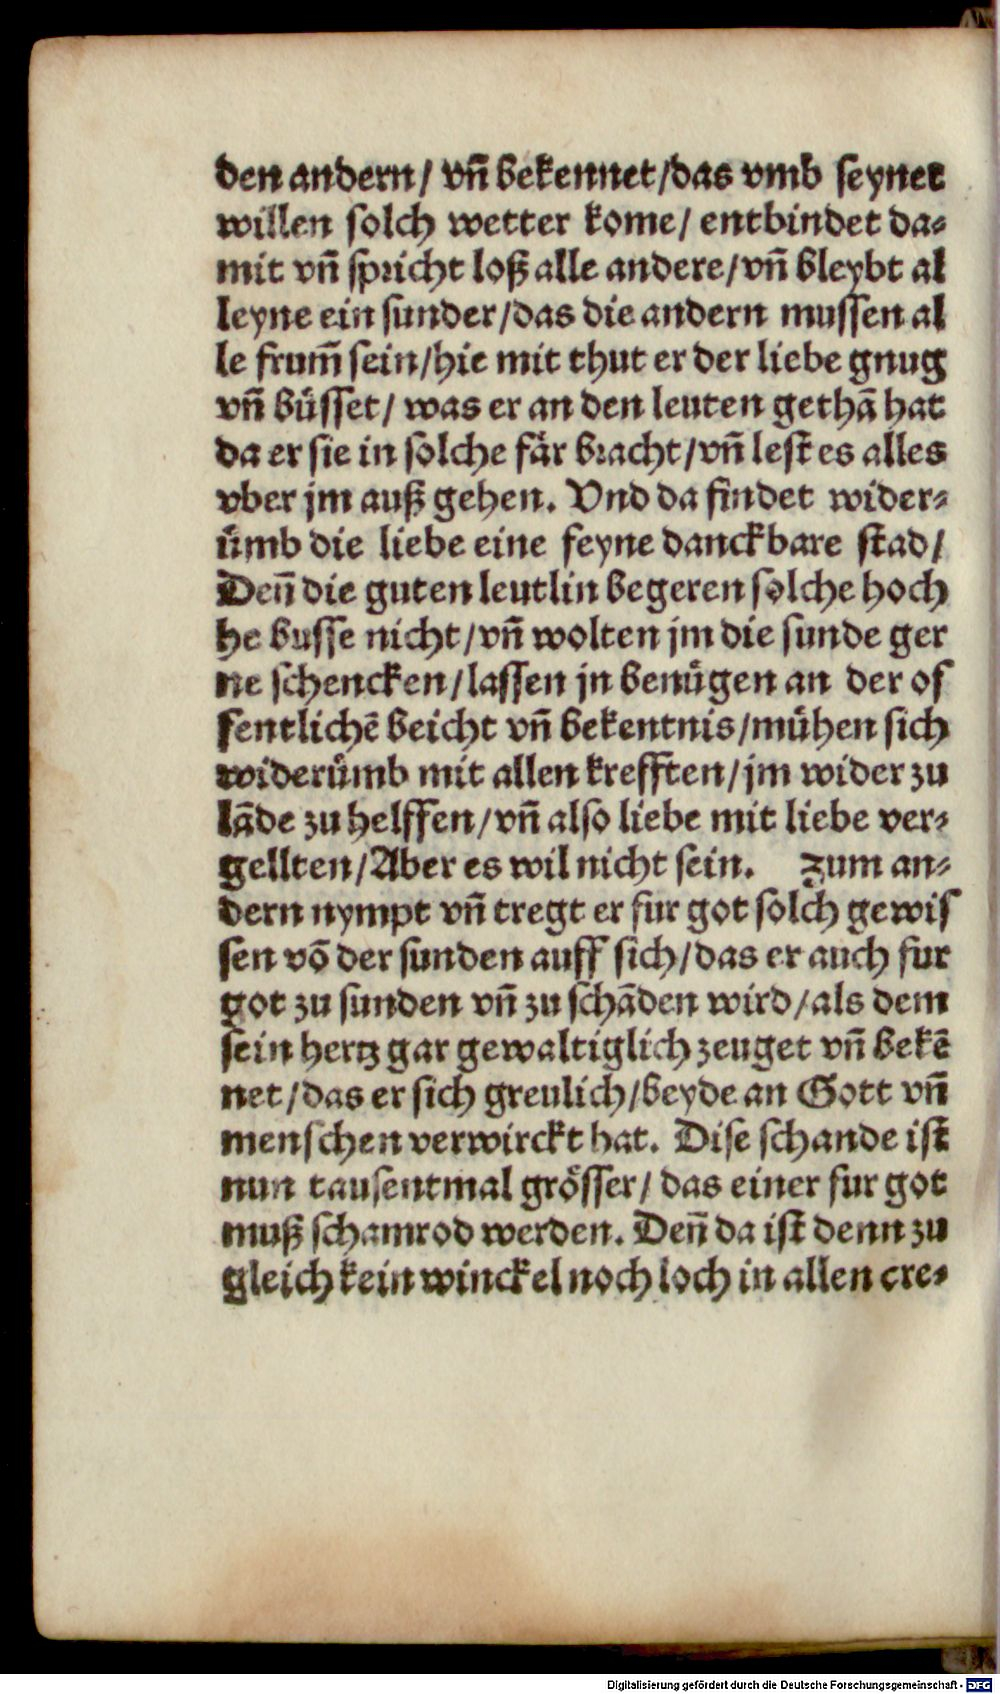 den andern/ vñ bekennet/das vmb seynet
willen solch wetter kome/ entbindet da⸗
mit vñ spricht loß alle andere/vñ bleybt al
leyne ein sunder/das die andern mussen al
le frum̃ sein/hie mit thut er der liebe gnug
vñ buͤsset/ was er an den leuten gethã hat
da er sie in solche faͤr bracht/vñ lest es alles
vber jm auß gehen. Vnd da findet wider⸗
uͤmb die liebe eine feyne danckbare stad/
Deñ die guten leutlin begeren solche hoch
he busse nicht/vñ wolten jm die sunde ger
ne schencken/lassen jn benuͤgen an der of
fentlichẽ beicht vñ bekentnis/muͤhen sich
wideruͤmb mit allen krefften/jm wider zu
lãde zu helffen/vñ also liebe mit liebe ver⸗
gellten/Aber es wil nicht sein. Zum an⸗
dern nympt vñ tregt er fur got solch gewis
sen võ der sunden auff sich/das er auch fur
got zu sunden vñ zu schãden wird/als dem
sein hertz gar gewaltiglich zeuget vñ bekẽ
net/das er sich greulich/beyde an Gott vñ
menschen verwirckt hat. Dise schande ist
nun tausentmal groͤsser/das einer fur got
muß schamrod werden. Deñ da ist denn zu
gleich kein winckel noch loch in allen cre⸗
Digitalisierung gefördert durch die Deutsche Forschungsgemeinschaft - DFG